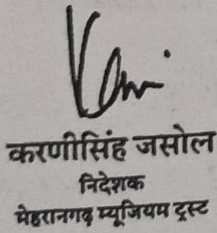 करणीसिंह जसोल
निदेशक
मेहरानगढ़ म्यूजियम ट्रस्ट